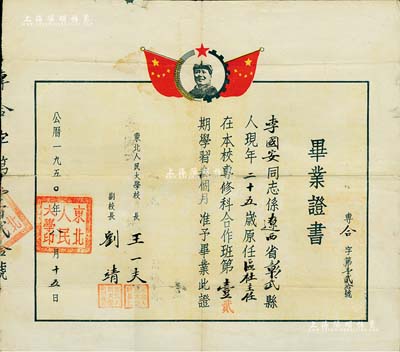 上海泓盛拍賣
畢業證書
專合字第壹貳拾號
李國安同志係遼西省彰武縣
人現年二十五歲原任區社主任
在本校專修科合作班第壹貳
期學習個月准予畢業此證
東北人民大學校長 王一夫
副校長 劉靖
公曆一九五〇年月十五日
東北人民大學印